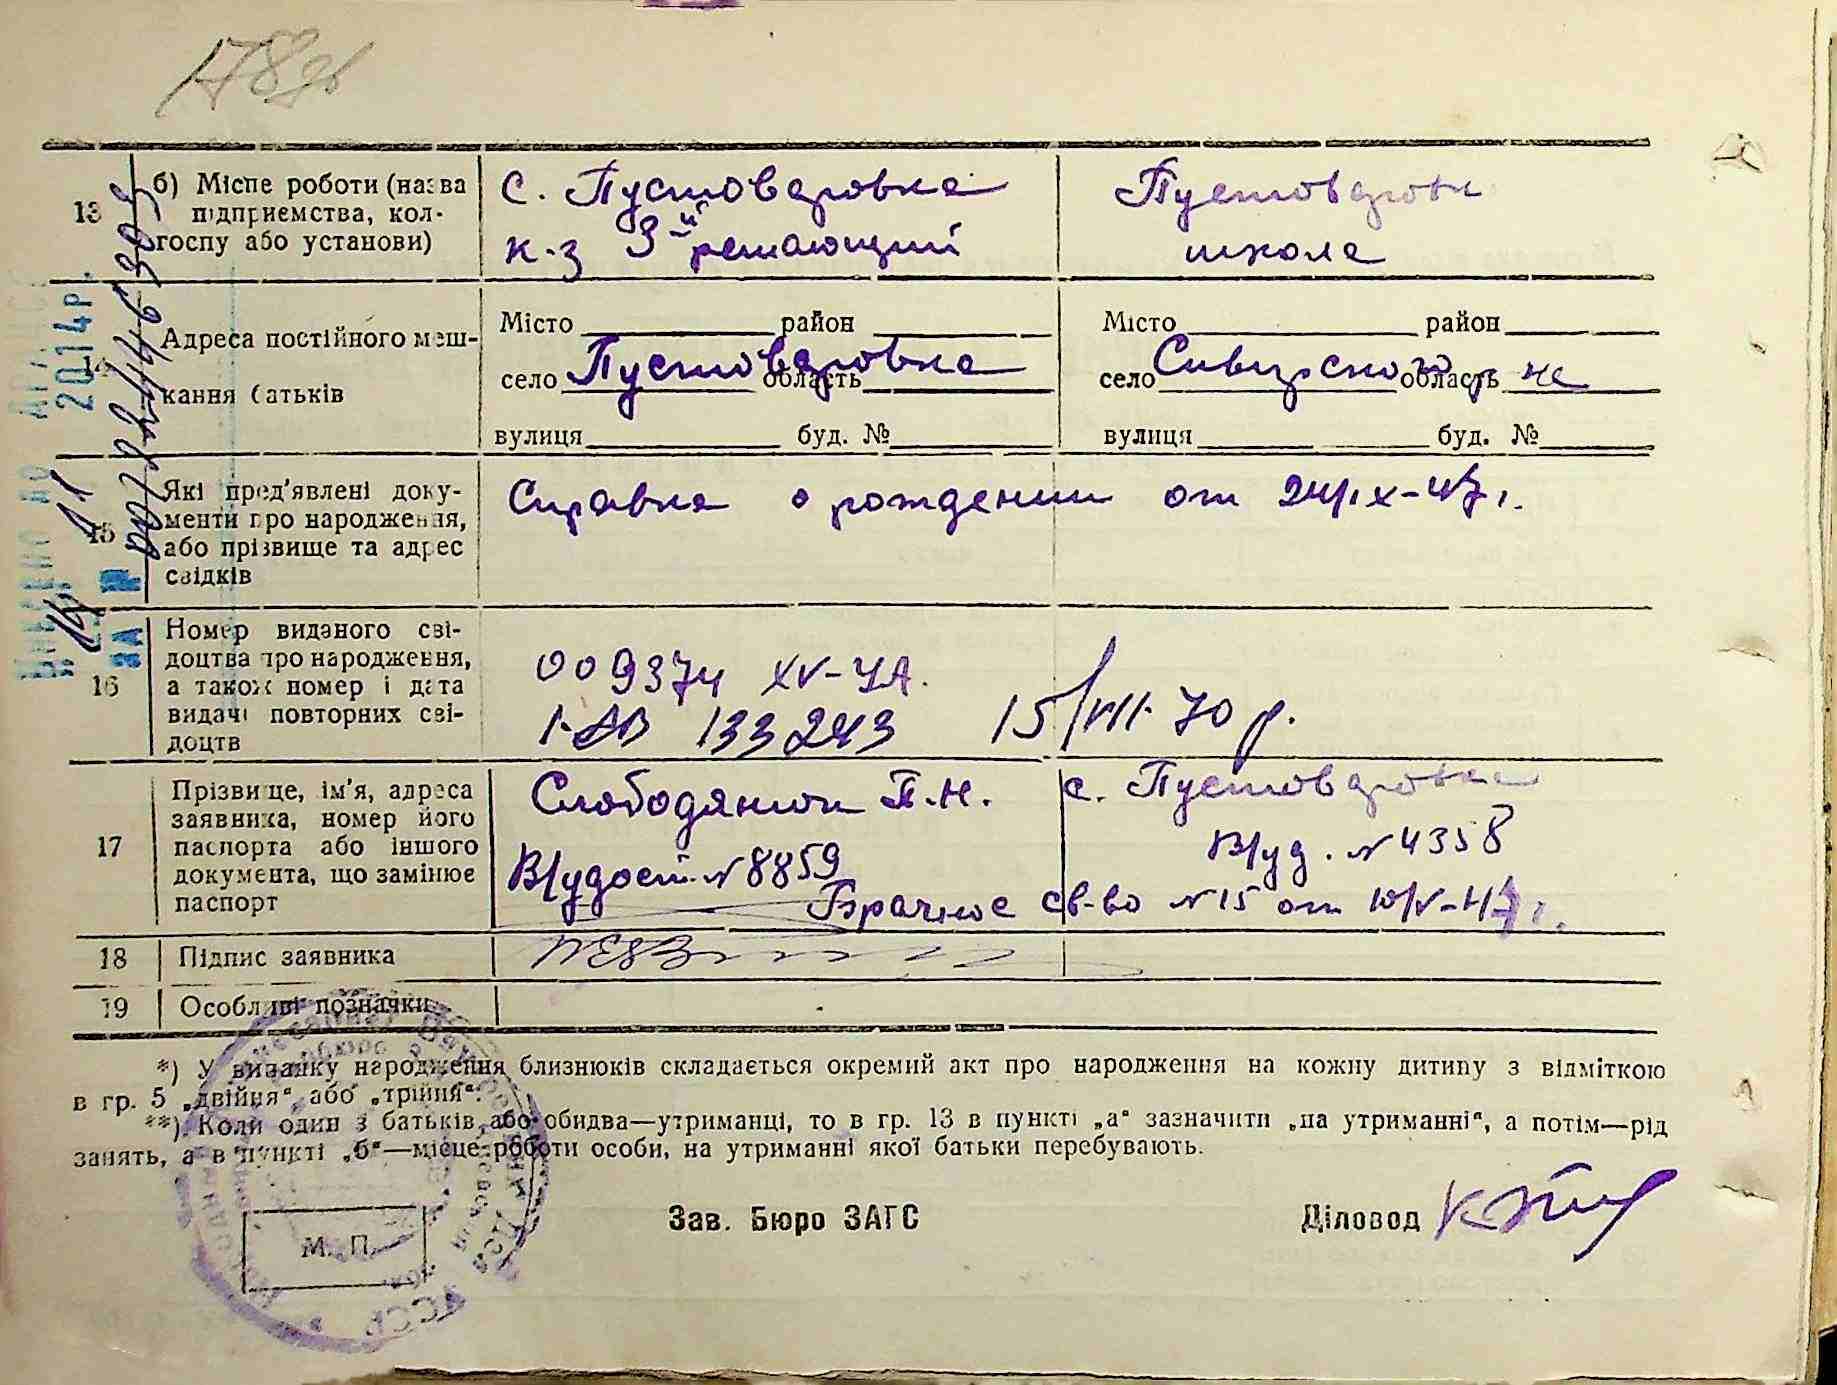 178зв
13
б) Місце роботи (назва
підприємства, кол-
госпу або установи)
с. Пустоваровка
к-з 3й решающий
Пустоваров
школа
14
Адреса постійного меш-
кання батьків
Місто район
село Пустоваровка область
вулиця буд. №
Місто район
село Сквирского область р-на
вулиця буд. №
15
Які пред'явлені доку-
менти про народження,
або прізвище та адрес
свідків
Справка о рождении от 24/IX-47 г.
16
Номер виданого сві-
доцтва про народження,
а також номер і дата
видачі повторних сві-
доцтв
009374 XV-УА.
133243 15/VII-70 р.
17
Прізвище, ім'я, адреса
заявника, номер його
паспорта або іншого
документа, що замінює
паспорт
Слободянюк П.Н.
В/удост. N 8859
с. Пустоваровка
В/уд. N 4358
Брачное св-во N 15 от 10/V-47 г.
18
Підпис заявника
19
Особливі позначки
*) У випадку народження близнюків складається окремий акт про народження на кожну дитину з відміткою
в гр. 5 „двійня“ або „трійня“.
**) Коли один з батьків, або обидва—утриманці, то в гр. 13 в пункті „а“ зазначити „на утриманні“, а потім—рід
занять, а в пункті „б“—місце роботи особи, на утриманні якої батьки перебувають.
М. П.
Зав. Бюро ЗАГС
Діловод
2014р.
УССР